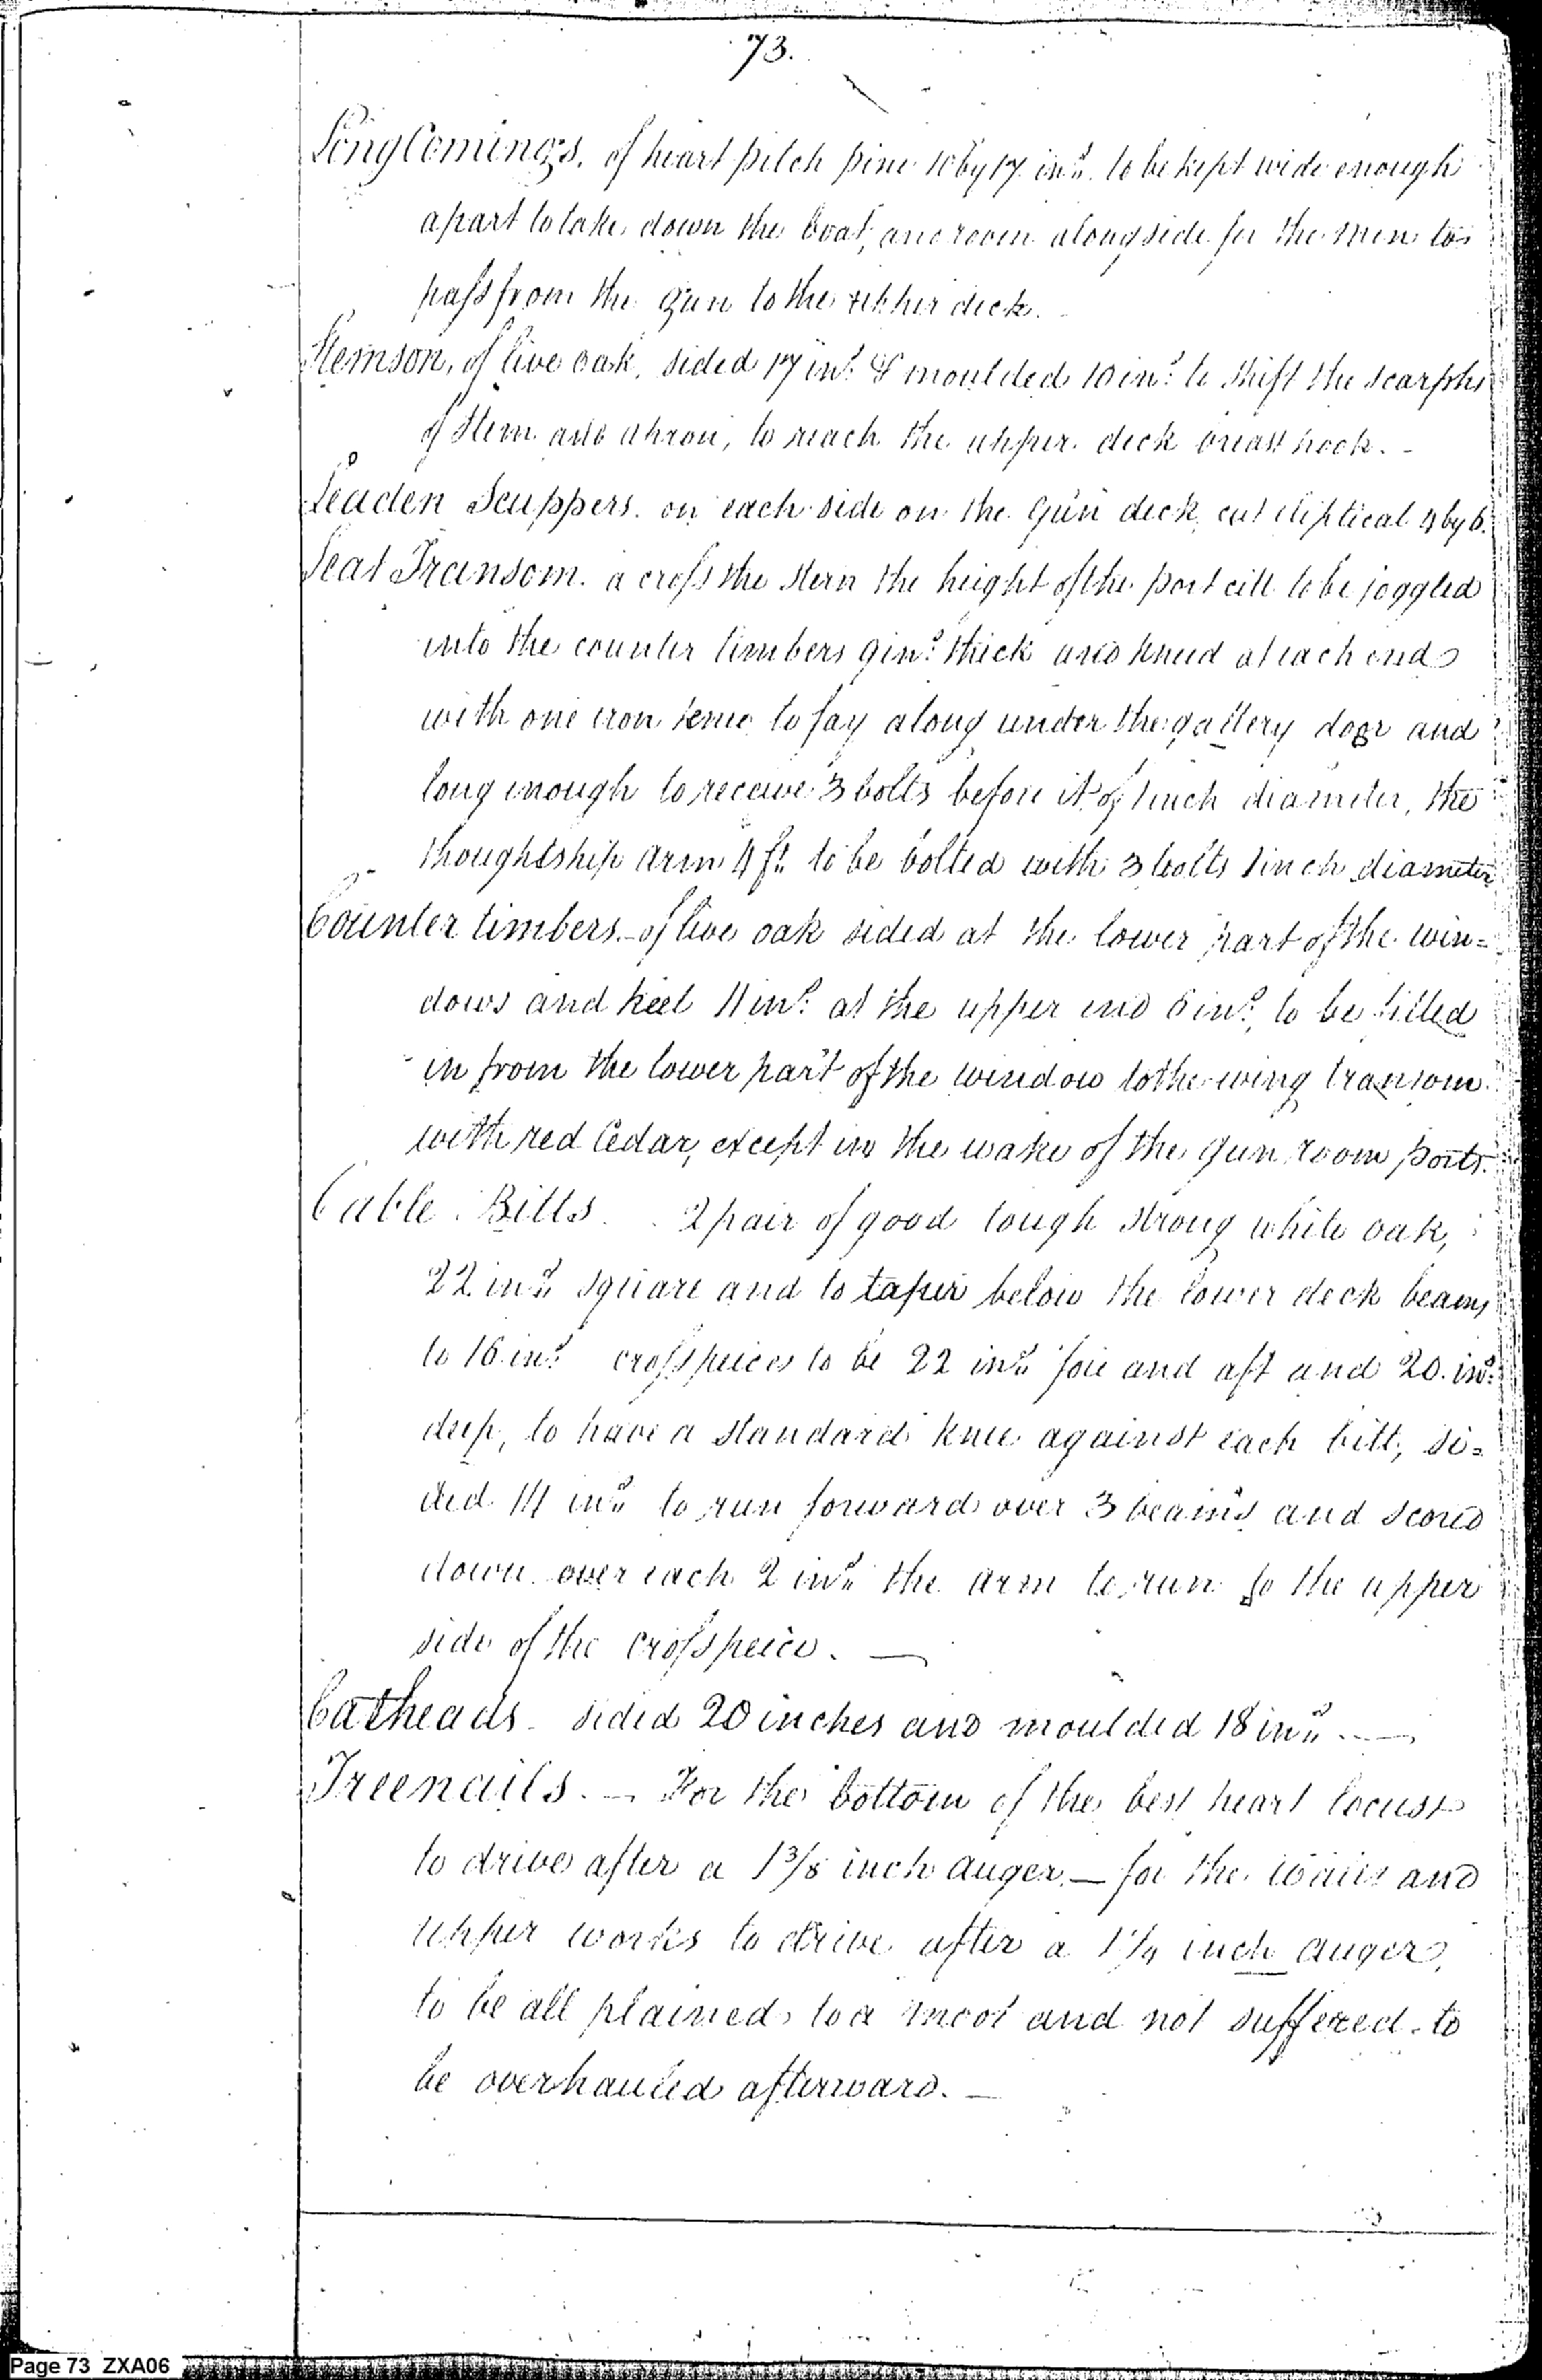 73.
Long Comings. of heart pitch pine 10 by 17 ins. to be kept wide enough
apart to take down the boat, and room alongside for the men to
pass from the gun to the upper deck.
Stemson, of live oak, sided 17 ins. & moulded 10 ins. to shift the scarphs
of Stem and apron, to reach the upper deck breast hook. -
Leaden Scuppers. on each side on the Gun deck, cut eliptical 4 by 6.
Seat Transom. a cross the stern the height of the port cill to be joggled
into the counter timbers 9 ins. thick and kneed at each end
with one iron knee to fay along under the gallery door and
long enough to receive 3 bolts before it of 1 inch diameter, the
thoughtship arm 4 ft. to be bolted with 3 bolts 1 inch diameter
Counter timbers - of live oak sided at the lower part of the win=
dows and heel 11 ins. at the upper end 6 ins. to be filled
in from the lower part of the window to the wing transom
with red Cedar, except in the wake of the gun room ports.
Cable Bitts. 2 pair of good tough strong white oak,
22 ins. square and to taper below the lower deck beams
to 16 ins. crosspeices to be 22 ins. fore and aft and 20. ins.
deep, to have a standard knee against each bitt, si=
ded 14 ins. to run forward over 3 beams and scored
down over each 2 ins. the arm to run to the upper
side of the crosspeice. —
Catheads - sided 20 inches and moulded 18 ins. —
Treenails. — For the bottom of the best heart locust
to drive after a 1 3/8 inch auger — for the wales and
upper works to drive after a 1 1/4 inch auger,
to be all plained to a moot and not suffered to
be overhauled afterward. —
Page 73 ZXA06